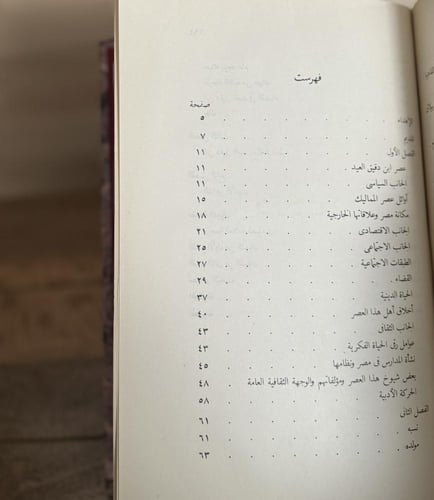 فهرست
صفحة
الإهداء ٥
تقديم ٧
الفصل الأول ١١
عصر ابن دقيق العيد ١١
الجانب السياسى ١١
أوائل عصر المماليك ١٥
مكانة مصر وعلاقاتها الخارجية ١٨
الجانب الاقتصادى ٢١
الجانب الاجتماعى ٢٥
الطبقات الاجتماعية ٢٧
القضاء ٢٩
الحياة الدينية ٣٧
أخلاق أهل هذا العصر ٤٠
الجانب الثقافى ٤٣
عوامل رقى الحياة الفكرية ٤٣
نشأة المدارس فى مصر ونظامها ٤٥
بعض شيوخ هذا العصر ومؤلفاتهم والوجهة الثقافية العامة ٤٨
الحركة الأدبية ٥٨
الفصل الثانى ٦١
نسبه ٦١
مولده ٦٣